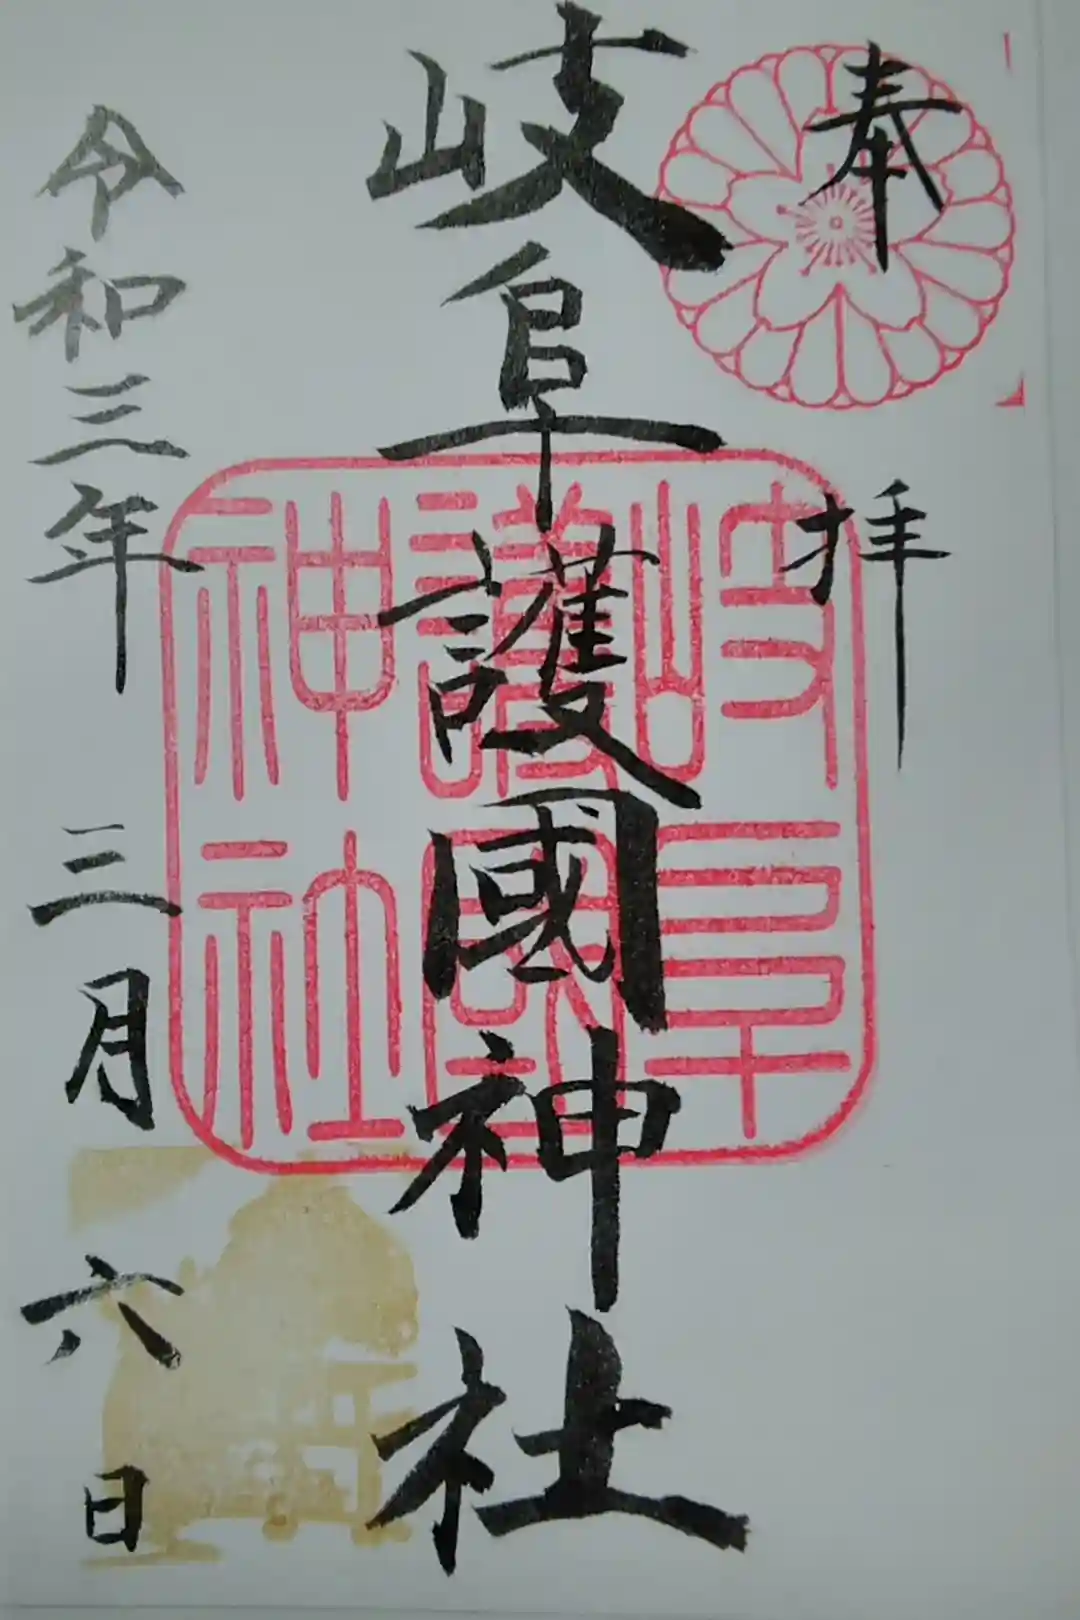 奉拝
岐阜護國神社
岐阜
護國
神社
令和三年三月六日